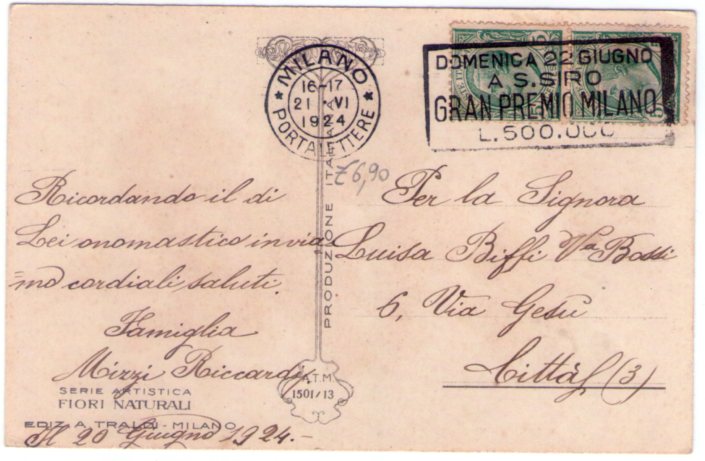 MILANO
16-17
21 VI
1924
PORTALETTERE
DOMENICA 22 GIUGNO
A S. SIRO
GRAN PREMIO MILANO
L. 500.000
€6,90
Ricordando il di
Lei onomastico invia
=mo cordiali saluti.
Famiglia
Mizzi Riccardi
Il 20 Giugno 1924.-
PRODUZIONE ITALIANA
A.T.M.
1501/13
SERIE ARTISTICA
FIORI NATURALI
EDIZ. A. TRALDI - MILANO
Per la Signora
Luisa Biffi Va Bossi
6, Via Gesù
Città (3)